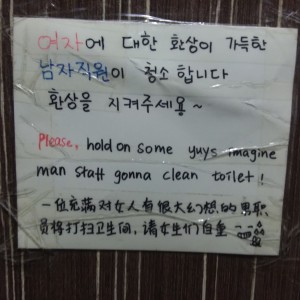 여자에 대한 환상이 가득한
남자직원이 청소합니다
환상을 지켜주세용~
Please, hold on some yuys imagine
man staff gonna clean toilet!
一位充满对女人有很大幻想的男职
员将打扫卫生间,请女生们自重